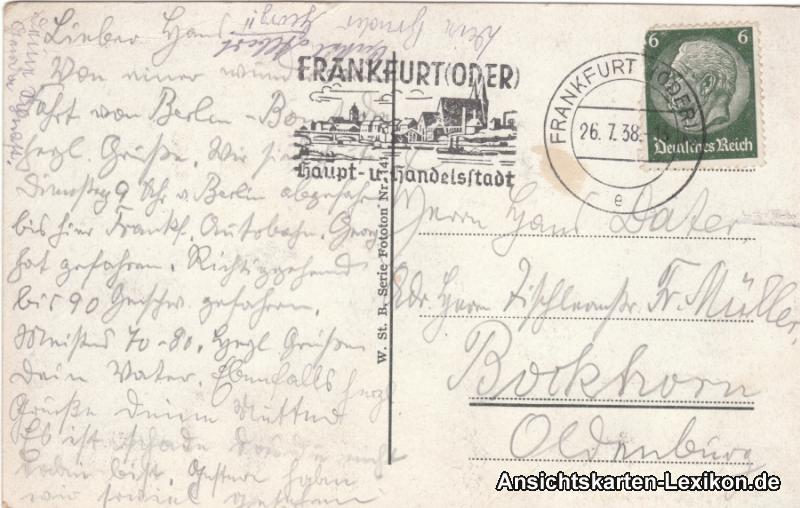 Lieber Hans
Von einer
Fahrt von Berlin -
herzl. Grüße. Wir sind
Dienstag 9 Uhr v. Berlin abgefahren
bis hier Frankf. Autobahn. Georg
hat gefahren. Richtiggehend
bis 90 Geschw. gefahren.
Meistens 70-80. Herzl. Grüßen
Dein Vater. Ebenfalls herzl.
Grüße Deine Mutter
Es ist schade daß Du nicht
dabei bist. Gestern haben
wir soviel gesehen
Dein Bruder
Georg!!
FRANKFURT(ODER)
Haupt- u. Handelsstadt
FRANKFURT (ODER)
26. 7. 38.
e
6 6
Deutsches Reich
W. St. B. Serie Fototon Nr. 141
Herrn Hans
Adr. Herrn Tischlermstr. Fr. Müller,
Bockhorn
Oldenburg
Ansichtskarten-Lexikon.de